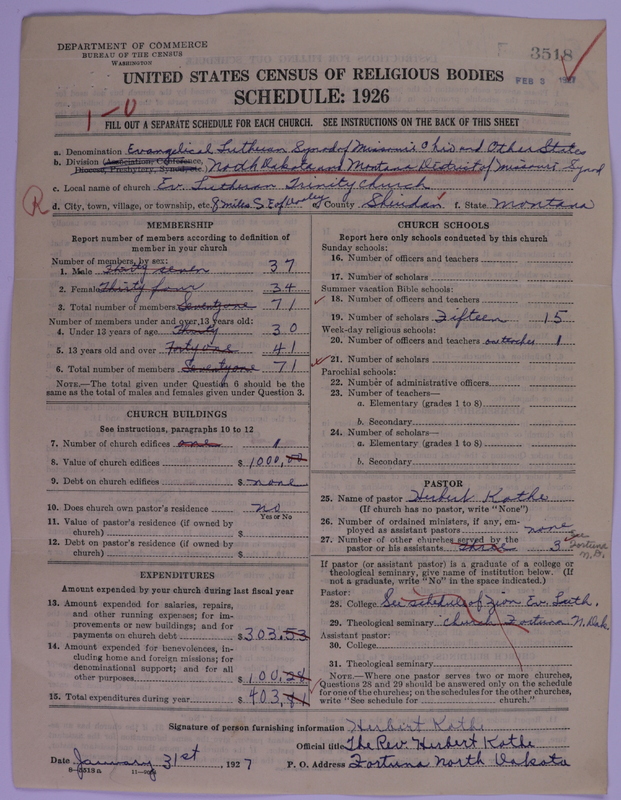 DEPARTMENT OF COMMERCE
BUREAU OF THE CENSUS
WASHINGTON
3518
FEB 3 1927
UNITED STATES CENSUS OF RELIGIOUS BODIES
SCHEDULE: 1926
1-0
FILL OUT A SEPARATE SCHEDULE FOR EACH CHURCH. SEE INSTRUCTIONS ON THE BACK OF THIS SHEET
a. Denomination Evangelical Lutheran Synod of Missouri Ohio and Other States
b. Division (Association, Conference, Diocese, Presbytery, Synod, etc.) North Dakota and Montana District of Missouri Synod
c. Local name of church Ev. Lutheran Trinity Church
R
d. City, town, village, or township, etc. 8 miles S.E. of e. County Sheridan f. State Montana
MEMBERSHIP
Report number of members according to definition of
member in your church
Number of members, by sex:
1. Male Thirty seven 37
2. Female Thirty four 34
3. Total number of members Seventy one 71
Number of members under and over 13 years old:
4. Under 13 years of age Thirty 30
5. 13 years old and over Forty one 41
6. Total number of members Seventy one 71
NOTE.—The total given under Question 6 should be the
same as the total of males and females given under Question 3.
CHURCH BUILDINGS
See instructions, paragraphs 10 to 12
7. Number of church edifices one 1
8. Value of church edifices $ 1000,00
9. Debt on church edifices $ none
10. Does church own pastor's residence no
Yes or No
11. Value of pastor's residence (if owned by
church) $
12. Debt on pastor's residence (if owned by
church) $
EXPENDITURES
Amount expended by your church during last fiscal year
13. Amount expended for salaries, repairs,
and other running expenses; for im-
provements or new buildings; and for
payments on church debt $ 303.53
14. Amount expended for benevolences, in-
cluding home and foreign missions; for
denominational support; and for all
other purposes $ 100,24
15. Total expenditures during year $ 403,81
CHURCH SCHOOLS
Report here only schools conducted by this church
Sunday schools:
16. Number of officers and teachers
17. Number of scholars
Summer vacation Bible schools:
18. Number of officers and teachers
19. Number of scholars Fifteen 15
Week-day religious schools:
20. Number of officers and teachers one teacher 1
21. Number of scholars
Parochial schools:
22. Number of administrative officers
23. Number of teachers—
a. Elementary (grades 1 to 8)
b. Secondary
24. Number of scholars—
a. Elementary (grades 1 to 8)
b. Secondary
PASTOR
25. Name of pastor Herbert Kothe
(If church has no pastor, write "None")
26. Number of ordained ministers, if any, em-
ployed as assistant pastors none
27. Number of other churches served by the
pastor or his assistants three 3 see Fortuna N.D.
If pastor (or assistant pastor) is a graduate of a college or
theological seminary, give name of institution below. (If
not a graduate, write "No" in the space indicated.)
Pastor:
28. College See schedule of Zion Ev. Luth.
29. Theological seminary church Fortuna N. Dak.
Assistant pastor:
30. College
31. Theological seminary
NOTE.—Where one pastor serves two or more churches,
Questions 28 and 29 should be answered only on the schedule
for one of the churches; on the schedules for the other churches,
write "See schedule for ______ church."
Signature of person furnishing information Herbert Kothe
Official title The Rev. Herbert Kothe
Date January 31st, 1927 P. O. Address Fortuna North Dakota